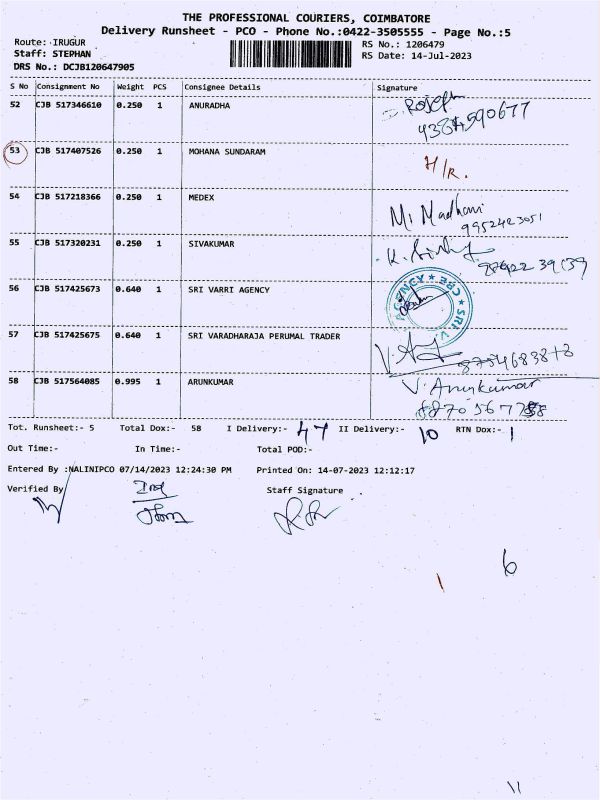 THE PROFESSIONAL COURIERS, COIMBATORE
Delivery Runsheet - PCO - Phone No.:0422-3505555 - Page No.:5
Route: IRUGUR
RS No.: 1206479
Staff: STEPHAN
RS Date: 14-Jul-2023
DRS No.: DCJB120647905
S No Consignment No Weight PCS Consignee Details Signature
52 CJB 517346610 0.250 1 ANURADHA
53 CJB 517407526 0.250 1 MOHANA SUNDARAM H/R.
54 CJB 517218366 0.250 1 MEDEX M. Madhani
9952423051
55 CJB 517320231 0.250 1 SIVAKUMAR
56 CJB 517425673 0.640 1 SRI VARRI AGENCY
57 CJB 517425675 0.640 1 SRI VARADHARAJA PERUMAL TRADER
58 CJB 517564085 0.995 1 ARUNKUMAR V. Arunkumar
Tot. Runsheet:- 5 Total Dox:- 58 I Delivery:- 47 II Delivery:- 10 RTN Dox:- 1
Out Time:- In Time:- Total POD:-
Entered By :NALINIPCO 07/14/2023 12:24:30 PM Printed On: 14-07-2023 12:12:17
Verified By Staff Signature
6